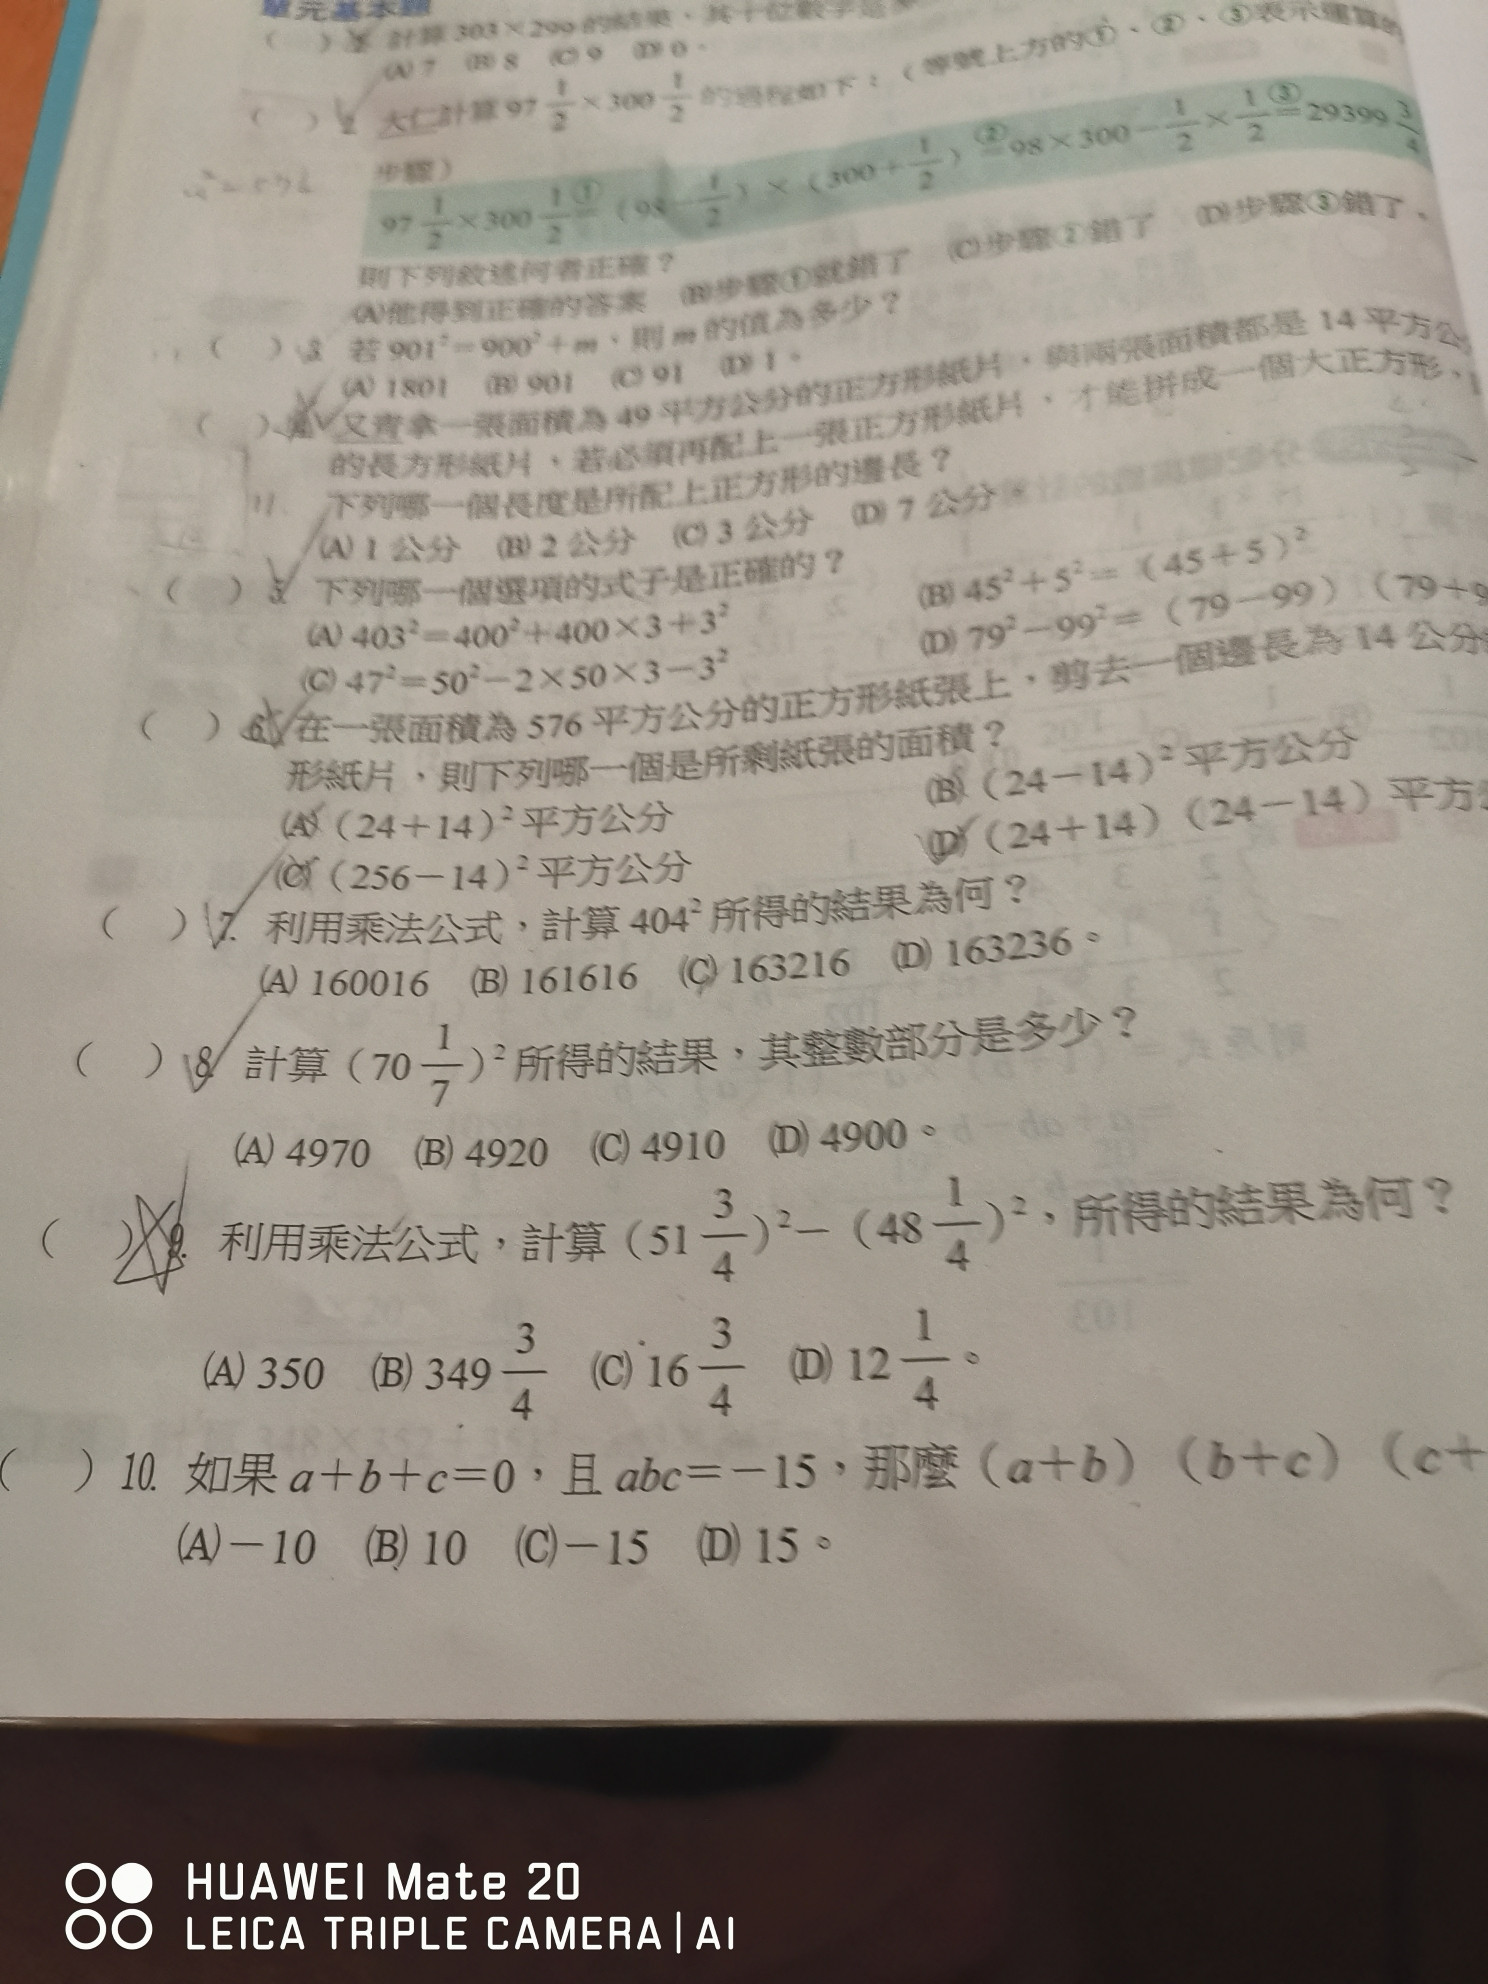 單元基本題
( ) 1. 計算 303×299 的結果,其十位數字是
(A) 7 (B) 8 (C) 9 (D) 0。
( ) 2. 大仁計算 97 1/2 × 300 1/2 的過程如下:(等號上方的①、②、③表示運算的
步驟)
97 1/2 × 300 1/2 ①= (98 − 1/2) × (300 + 1/2) ②= 98×300 − 1/2 × 1/2 ③= 29399 3/4
則下列敘述何者正確?
(A)他得到正確的答案 (B)步驟①就錯了 (C)步驟②錯了 (D)步驟③錯了。
( ) 3. 若 901²=900²+m,則 m 的值為多少?
(A) 1801 (B) 901 (C) 91 (D) 1。
( ) 4. 又青拿一張面積為 49 平方公分的正方形紙片,與兩張面積都是 14 平方公
的長方形紙片,若必須再配上一張正方形紙片,才能拼成一個大正方形,
下列哪一個長度是所配上正方形的邊長?
(A) 1 公分 (B) 2 公分 (C) 3 公分 (D) 7 公分
( ) 5. 下列哪一個選項的式子是正確的?
(A) 403²=400²+400×3+3² (B) 45²+5²=(45+5)²
(C) 47²=50²−2×50×3−3² (D) 79²−99²=(79−99)(79+9
( ) 6. 在一張面積為 576 平方公分的正方形紙張上,剪去一個邊長為 14 公分
形紙片,則下列哪一個是所剩紙張的面積?
(A)(24+14)² 平方公分 (B)(24−14)² 平方公分
(C)(256−14)² 平方公分 (D)(24+14)(24−14)平方
( ) 7. 利用乘法公式,計算 404² 所得的結果為何?
(A) 160016 (B) 161616 (C) 163216 (D) 163236。
( ) 8. 計算(70 1/7)² 所得的結果,其整數部分是多少?
(A) 4970 (B) 4920 (C) 4910 (D) 4900。
( ) 9. 利用乘法公式,計算(51 3/4)²−(48 1/4)²,所得的結果為何?
(A) 350 (B) 349 3/4 (C) 16 3/4 (D) 12 1/4。
( ) 10. 如果 a+b+c=0,且 abc=−15,那麼(a+b)(b+c)(c+
(A)−10 (B) 10 (C)−15 (D) 15。
HUAWEI Mate 20
LEICA TRIPLE CAMERA | AI